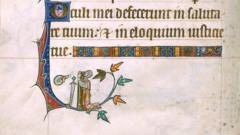 Oculi mei defecerunt in saluta
re tuum: et in eloquium iustitie
tue.